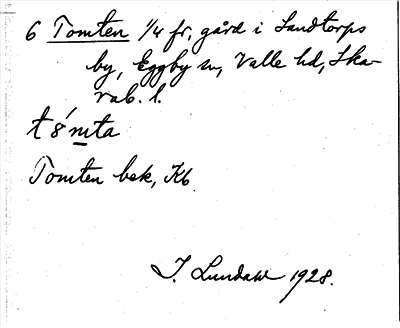 6 Tomten 1/4 fr, gård i Sandtorps
by, Eggby sn, Valle hd, Ska-
rab. l.
Tomten bek, Kb
I. Lundahl 1928.